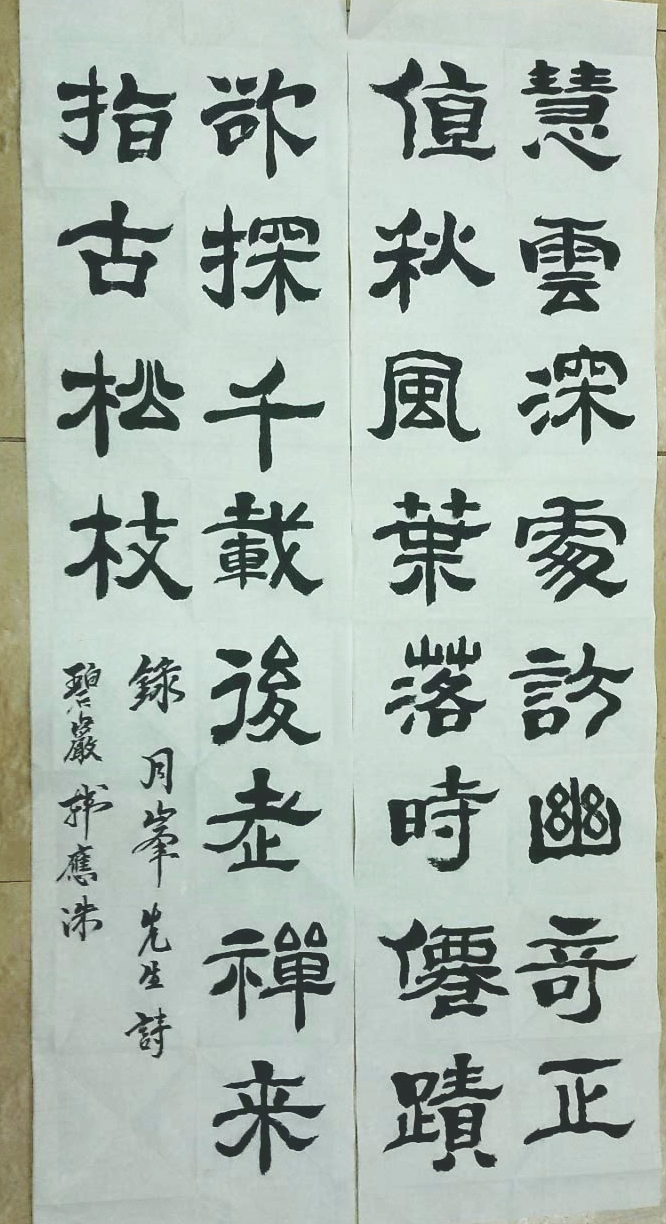 慧雲深處訪幽奇正
值秋風葉落時僊蹟
欲探千載後老禪来
指古松枝
錄月峯先生詩
碧巖韓應洙